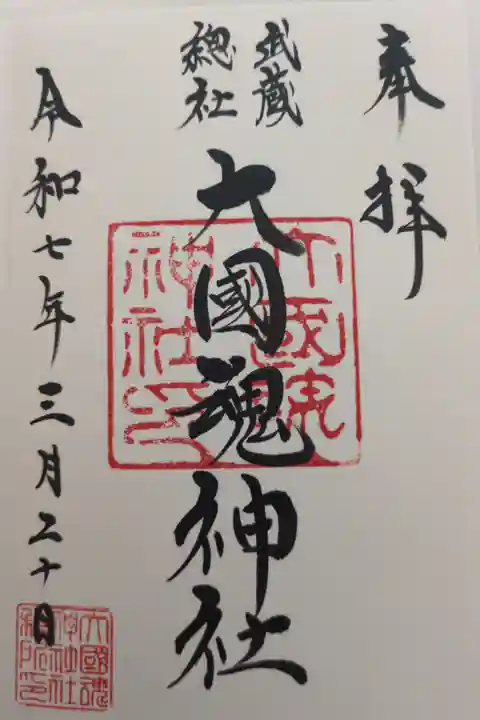 奉拝
武蔵
總社
大國魂神社
令和七年三月二十日
大國魂
神社印
大國魂
神社